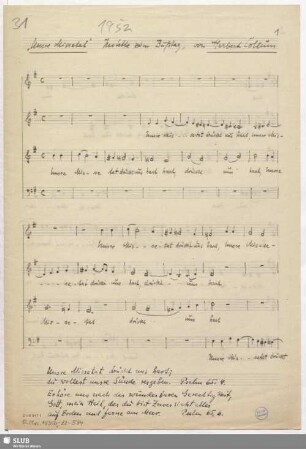 31 1952 1
"Unsre Missetat" Motette zum Bußtag, von Herbert Collum
Unsre Misse-tat drückt uns hart, unsre Mis-
Unsre Mis-se-tat drückt uns hart, drückt uns hart, Unsre
Unsre Mis-se-tat drückt uns hart, Unsre Misse-
se-tat drückt uns hart, drückt uns hart
Mis-se-tat drückt uns hart
Unsre Mis-setat drückt
Unsre Missetat drückt uns hart;
du wollest unsre Sünde vergeben. Psalm 65, 4.
Erhöre uns nach der wunderbaren Gerechtigkeit,
Gott, unser Heil, der du bist Zuversicht aller
auf Erden und ferne am Meer. Psalm 65, 6.
SLUB